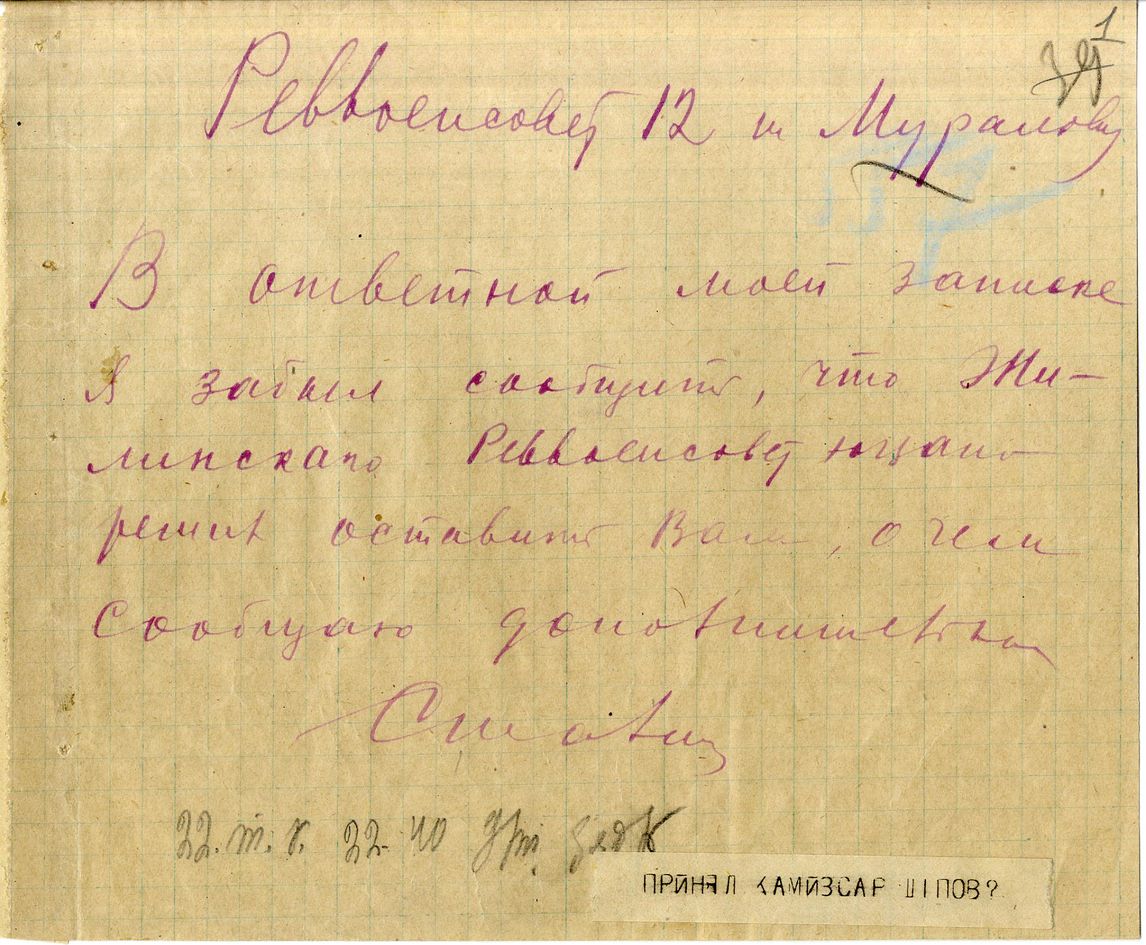 1
39
Реввоенсовет 12 т Муралову
В ответной моей записке
я забыл сообщить, что Жи-
линскаго Реввоенсовет югзап
решил оставить Вам, о чем
сообщаю дополнительно
Сталин
22. 40
ПРИНЯЛ КАМИЗСАР ШПОВ?